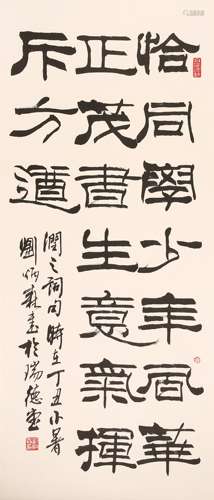 恰同學少年風華
正茂書生意氣揮
斥方遒
潤之詞句時在丁丑小暑
劉炳森書於瑞德堂